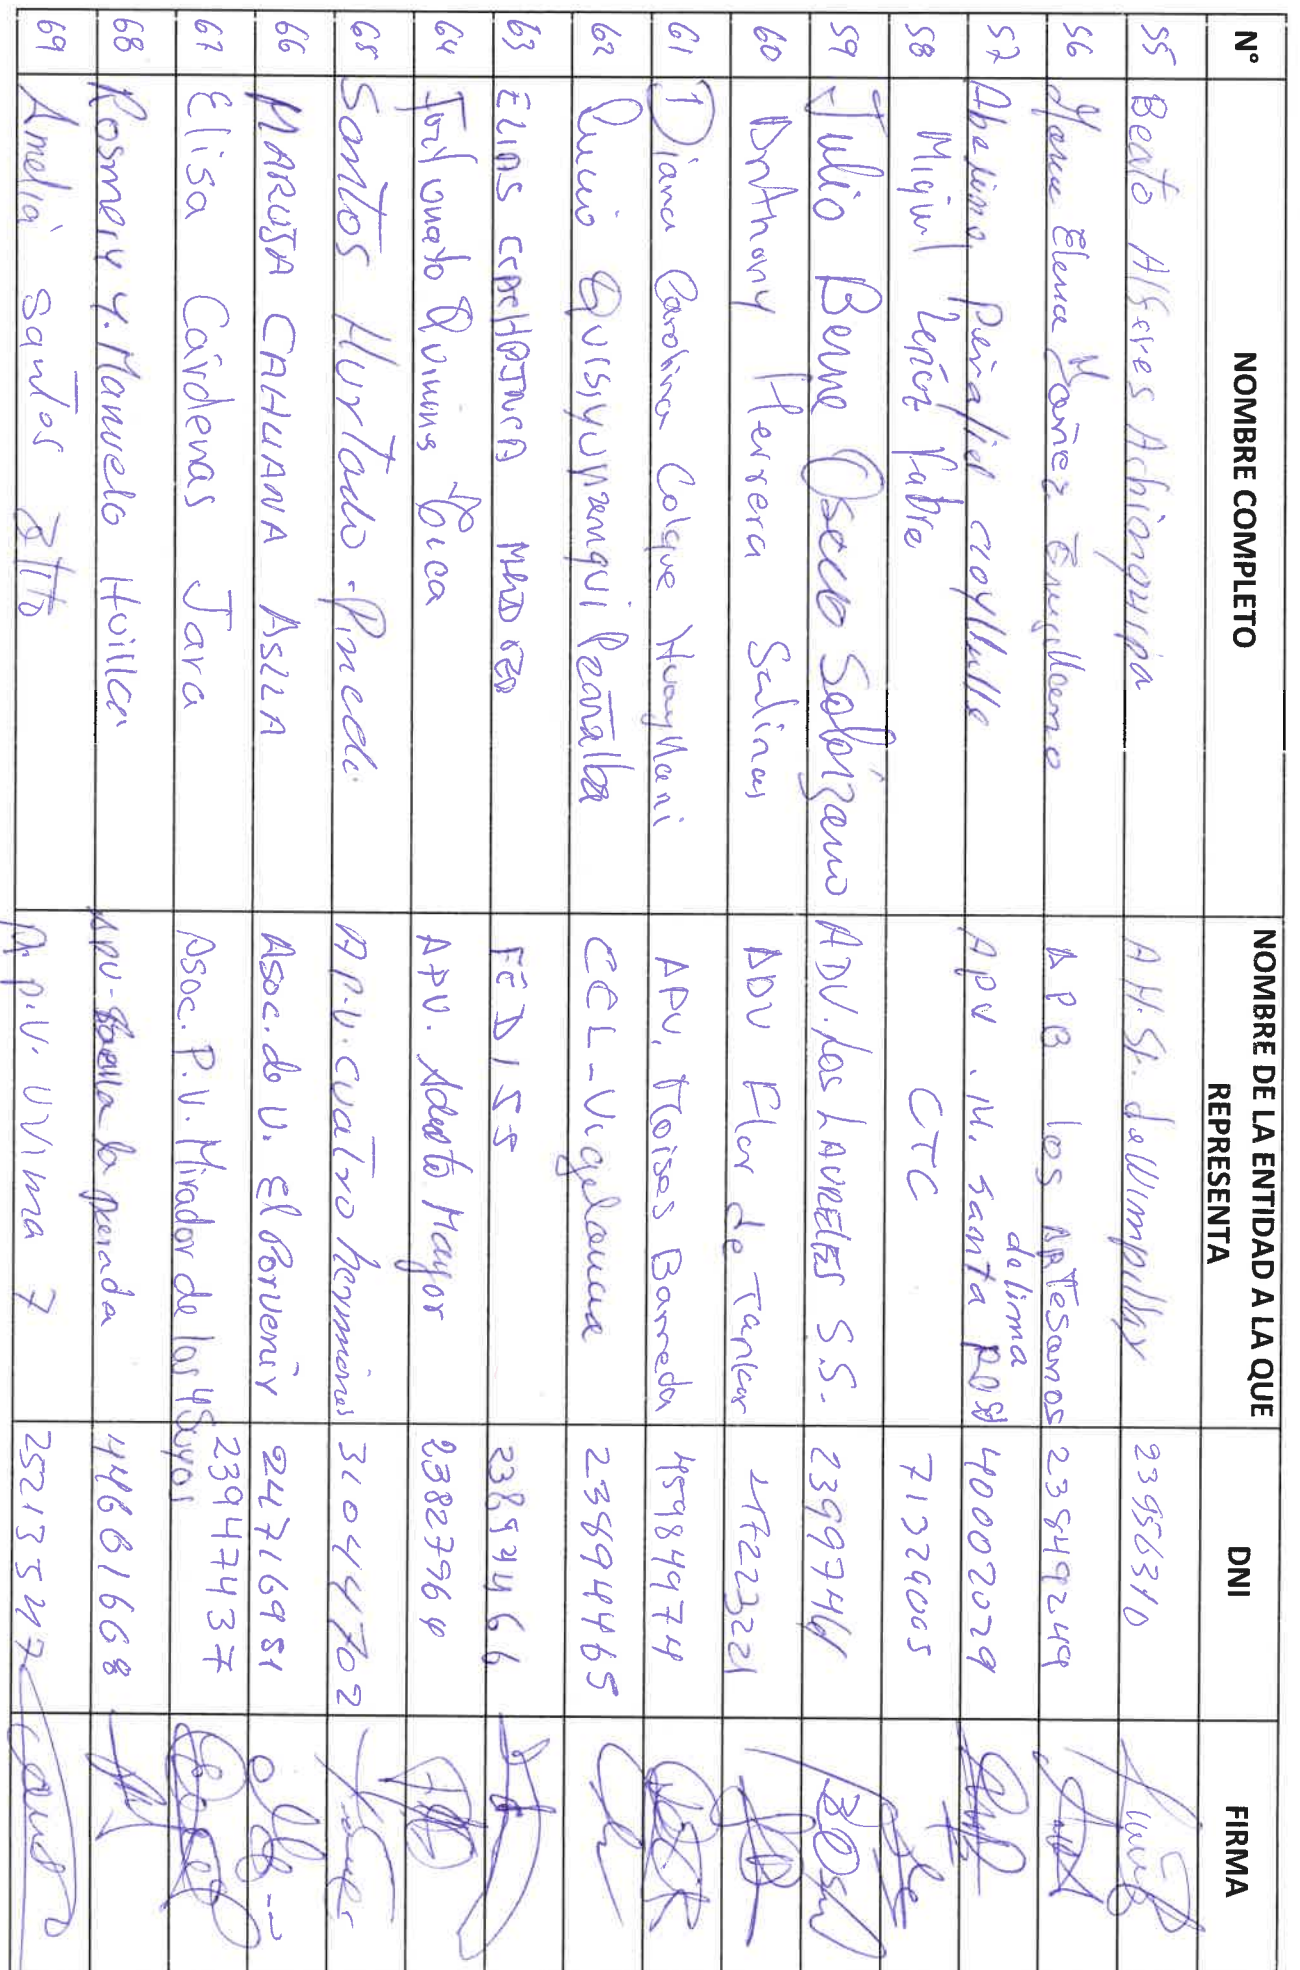 N° NOMBRE COMPLETO NOMBRE DE LA ENTIDAD A LA QUE REPRESENTA DNI FIRMA
55 Beato Alferes Achianquipa A.H. St. de Wimpillay 23956310
56 Maria Elena Yañez APB los ARTesanos 23849249
57 Abelino Peñafiel ccoyllullo APV. M. santa ROSA de lima 40002029
58 Miguel CTC 71329005
59 Julio Berne Oscco Solorzano ADV. Los LAURELES S.S. 23997446
60 Anthony Herrera Salinas ADV Flor de Tankar 47223221
61 Diana Carolina Colque Huayllani APV. Moises Barreda 45984974
62 Lucio Quisiyupanqui Peñalba CCL-Vigilancia 23894465
63 ELIAS CCACHAINCA FEDISS 23894466
64 Quimis APV. Adento Mayor 23827964
65 Santos Hurtado Pineda A P.V. cuatro hermanos 31044702
66 MARUJA CAHUANA ASLLA Asoc. de V. El Porvenir 24716981
67 Elisa Cárdenas Jara Asoc. P.V. Mirador de los 4 Suyos 23947437
68 Rosmery Y. Manuelo Huillca APV- la 44661668
69 Amelia Santos A.p.V. UVIMA 7 25213547